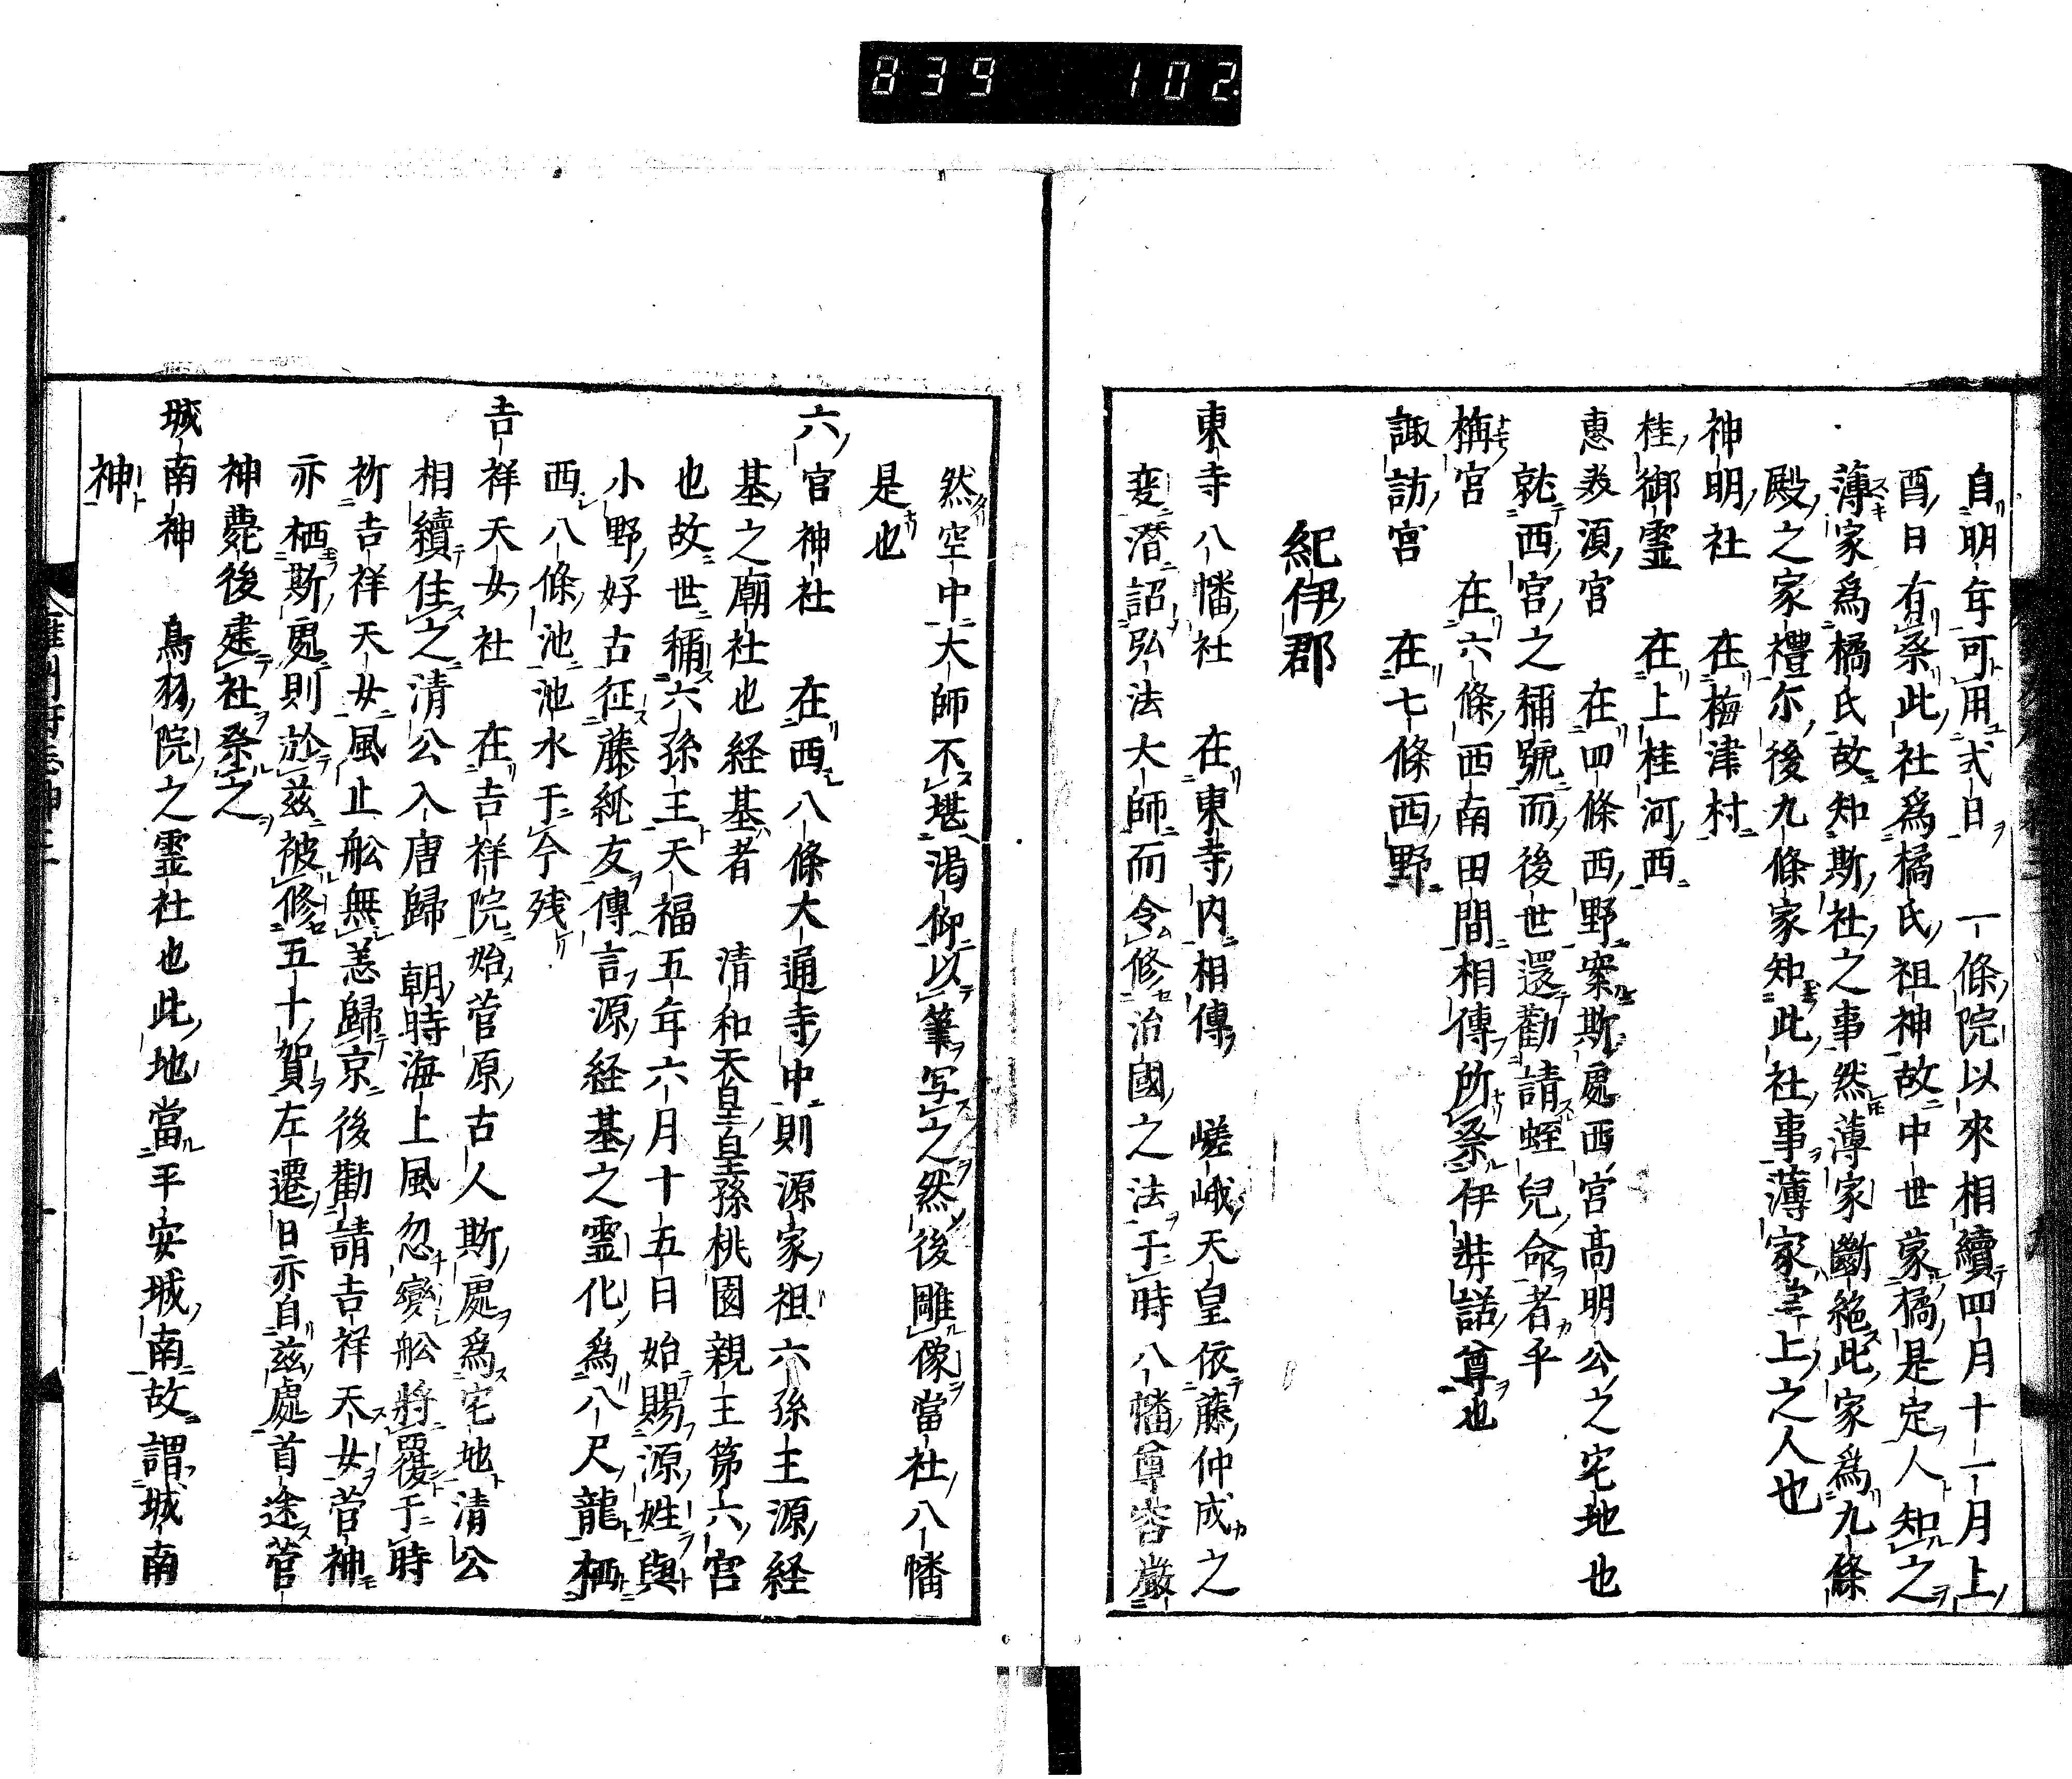 839 102
自明年可用式日 一條院以來相續四月十一月上
酉日有祭此社爲橘氏祖神故中世蒙橘是定人知之
薄家爲橘氏故知斯社之事然薄家斷絶此家爲九條
殿之家禮尓後九條家知此社事薄家堂上之人也
神明社 在梅津村
桂御霊 在上桂河西
恵美須宮 在四條西野案斯處西宮高明公之宅地也
就西宮之稱號而後世還勸請蛭兒命者乎
椭宮 在六條西南田間相傳所祭伊弉諾尊也
諏訪宮 在七條西野
紀伊郡
東寺八幡社 在東寺内相傳 嵯峨天皇依藤仲成之
変潜詔弘法大師而令修治國之法于時八幡尊容嚴
然空中大師不堪渇仰以筆写之然後雕像當社八幡
是也
六宮神社 在西八條大通寺中則源家祖六孫王源経
基之廟社也経基者 清和天皇皇孫桃園親王第六宮
也故世稱六孫王天福五年六月十五日始賜源姓與
小野好古征藤純友傳言源経基之霊化爲八尺龍栖
西八條池池水于今残
吉祥天女社 在吉祥院始菅原古人斯處爲宅地清公
相續住之清公入唐歸 朝時海上風忽變舩將覆于時
祈吉祥天女風止舩無恙歸京後勸請吉祥天女菅神
亦栖斯處則於茲被修五十賀左遷日亦自茲處首途菅
神薨後建社祭之
城南神 鳥羽院之霊社也此地當平安城南故謂城南
神